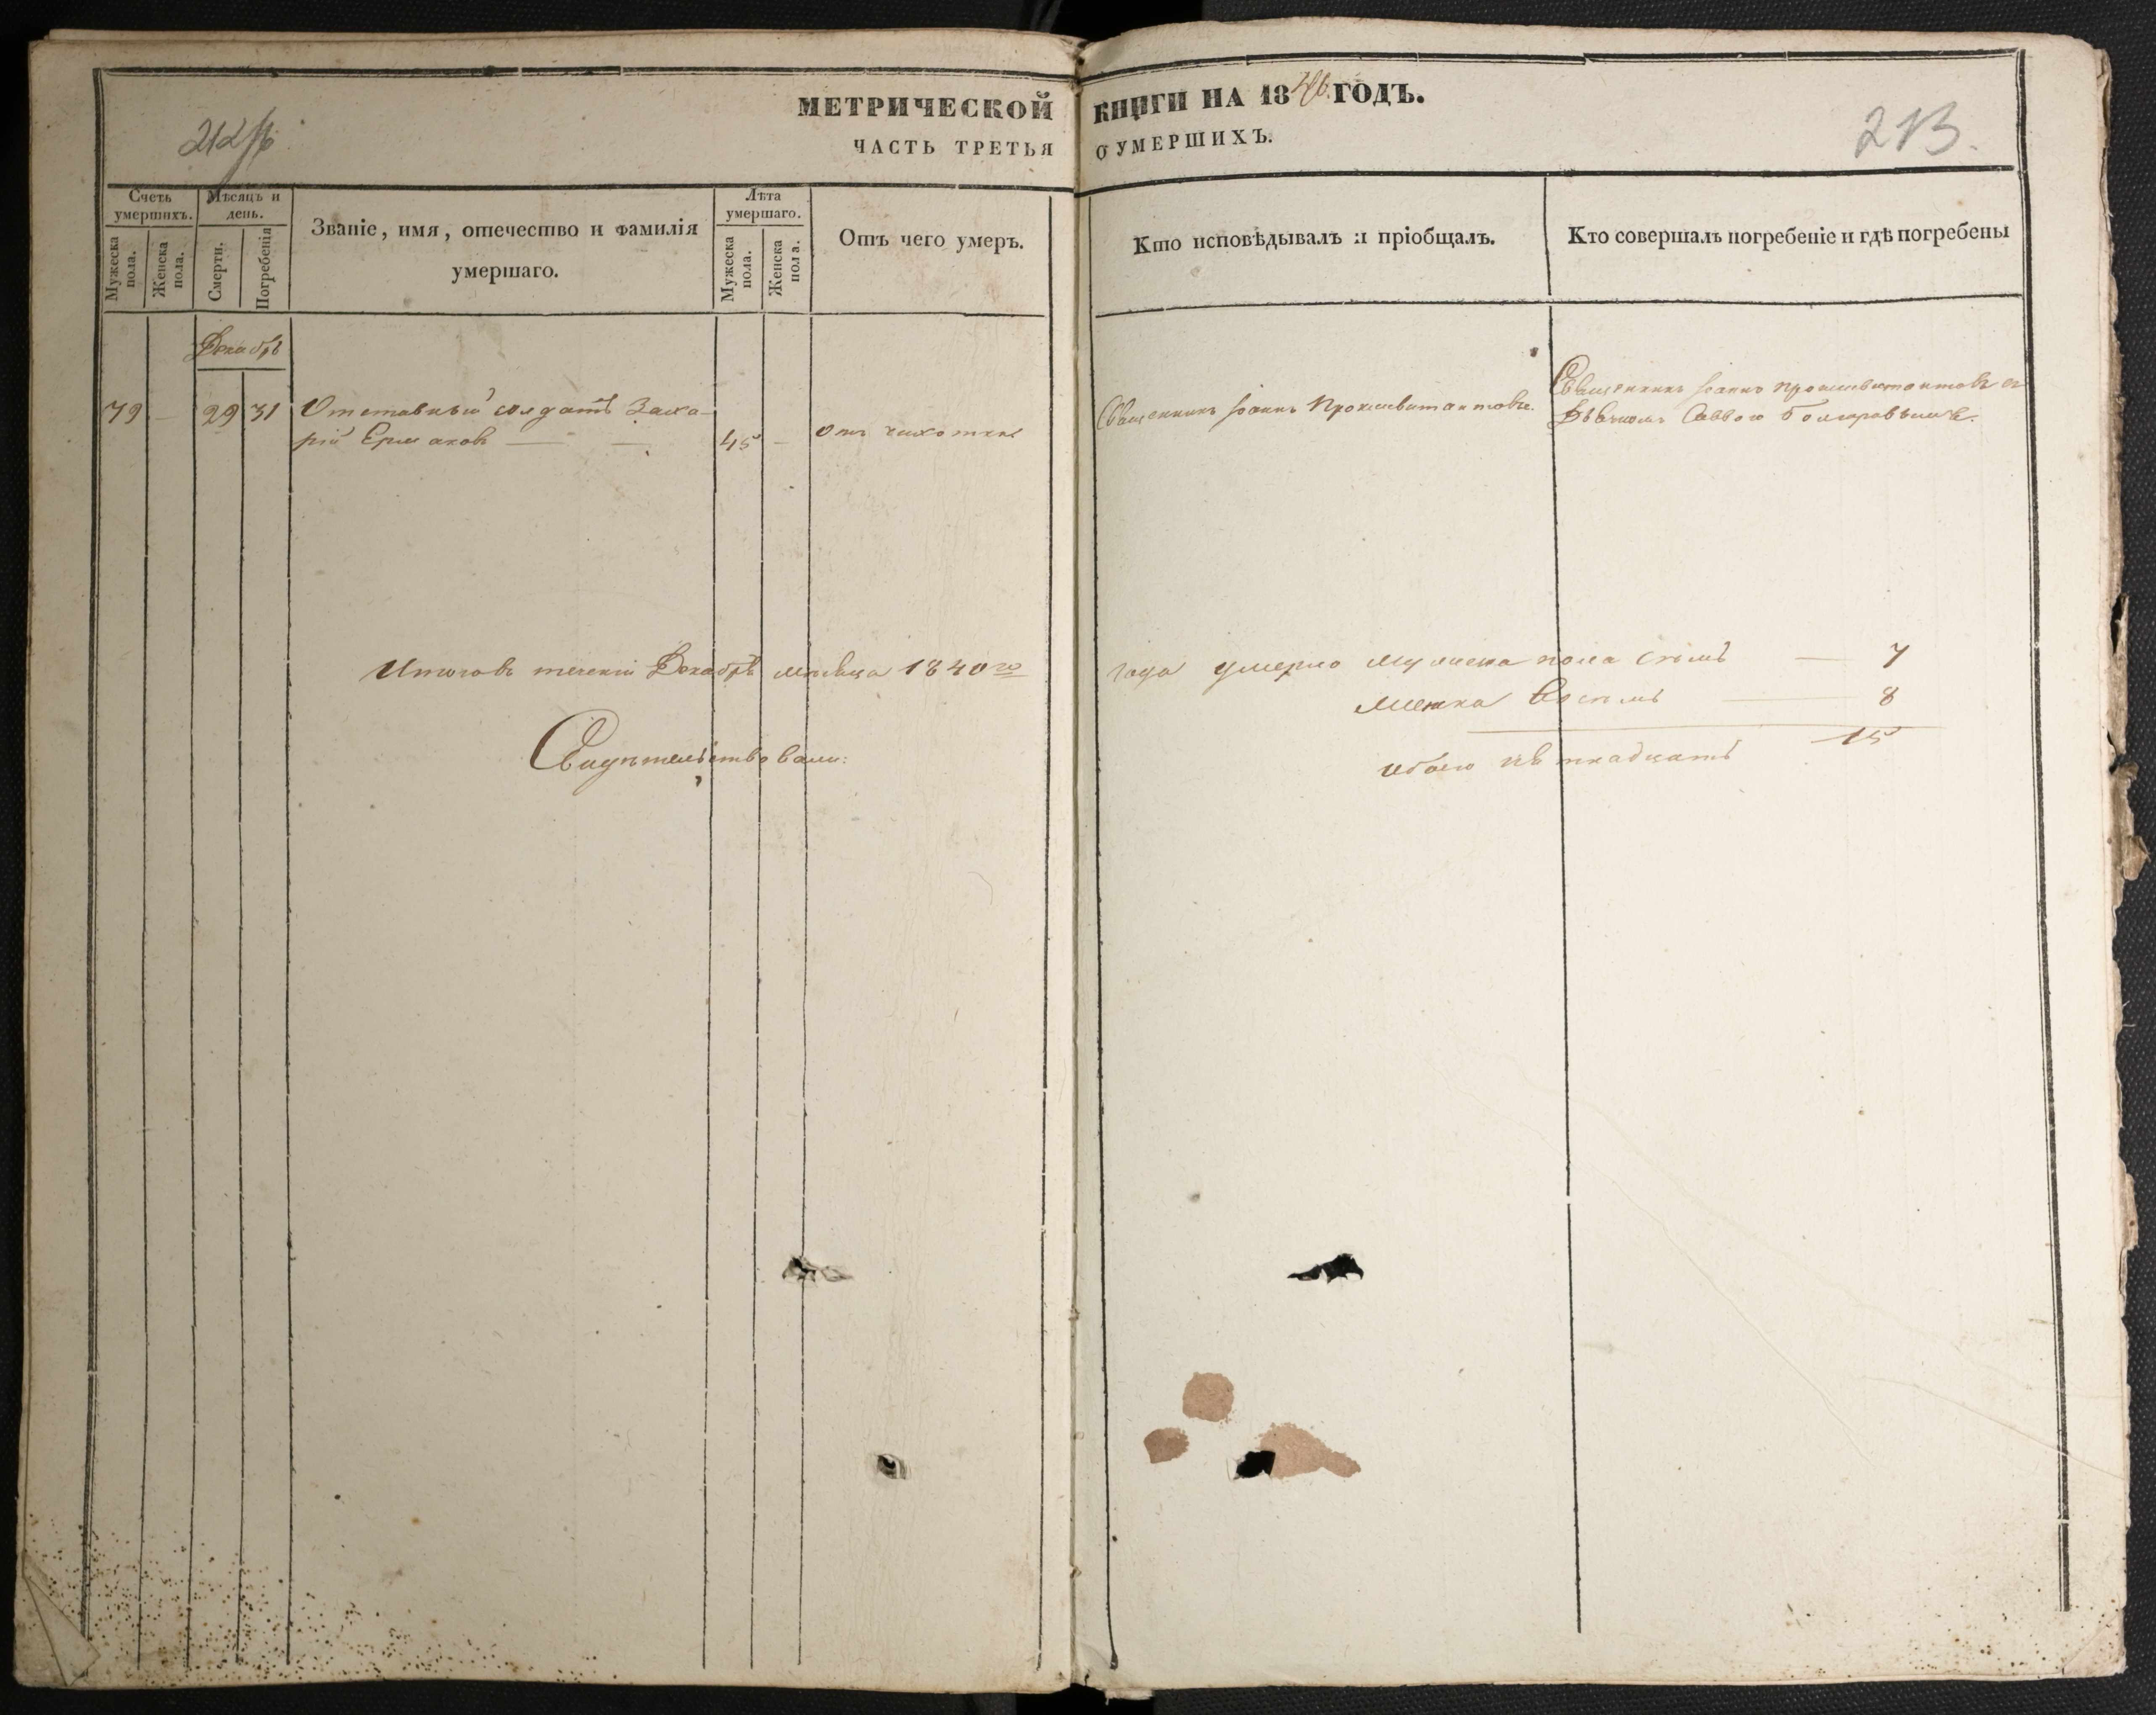 МЕТРИЧЕСКОЙ КНИГИ НА 1840 ГОДЪ.
ЧАСТЬ ТРЕТЬЯ О УМЕРШИХЪ.
213.
Счетъ умершихъ.
Мужеска пола.
Женска пола.
Мѣсяцъ и день.
Смерти.
Погребенія
Званіе, имя, отечество и фамилія
умершаго.
Лѣта умершаго.
Мужеска пола.
Женска пола.
Отъ чего умеръ.
Кто исповѣдывалъ и пріобщалъ.
Кто совершалъ погребеніе и гдѣ погребены
Декабрь
79 — 29 31 Отставный солдатъ Заха-
рій Ермаковъ — — 45 — Отъ чихотки
Священникъ Іоаннъ
Священникъ Іоаннъ
Саввою
Итого въ теченіи Декабрѣ мѣсяца 1840го года умерло мужеска пола семь — 7
женска восемь — 8
обоего пятнадцать 15
Свидѣтельствовали: